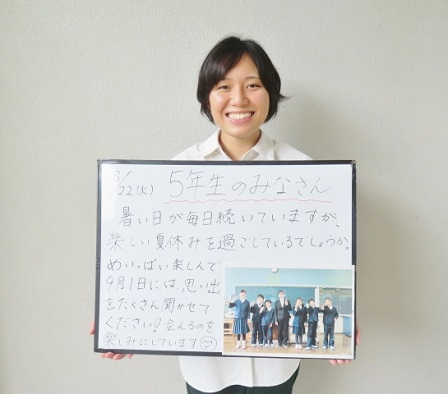 8/22(火) 5年生のみなさん
暑い日が毎日続いていますが、
楽しい夏休みを過ごしているでしょうか。
めいっぱい楽しんで
9月1日には、思い出
をたくさん聞かせて
ください!会えるのを
楽しみにしています